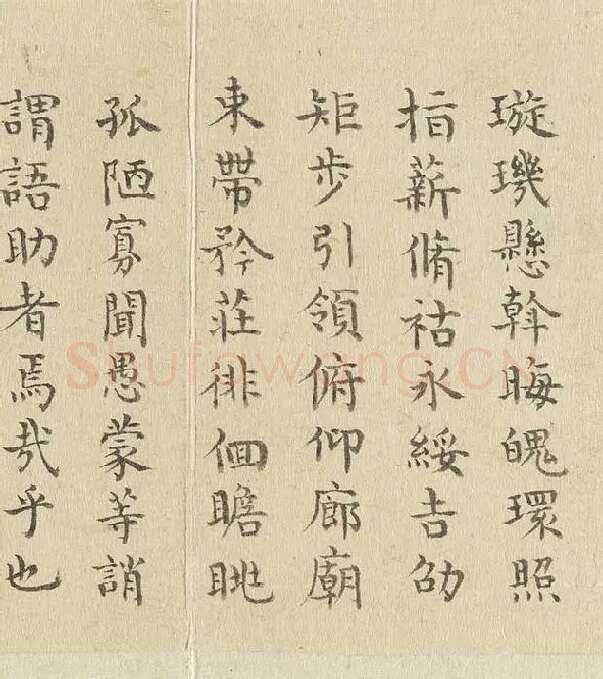 璇璣懸斡晦魄環照
指薪脩祜永綏吉劭
矩步引領俯仰廊廟
束帶矜莊徘徊瞻眺
孤陋寡聞愚蒙等誚
謂語助者焉哉乎也
Shufawang.CN